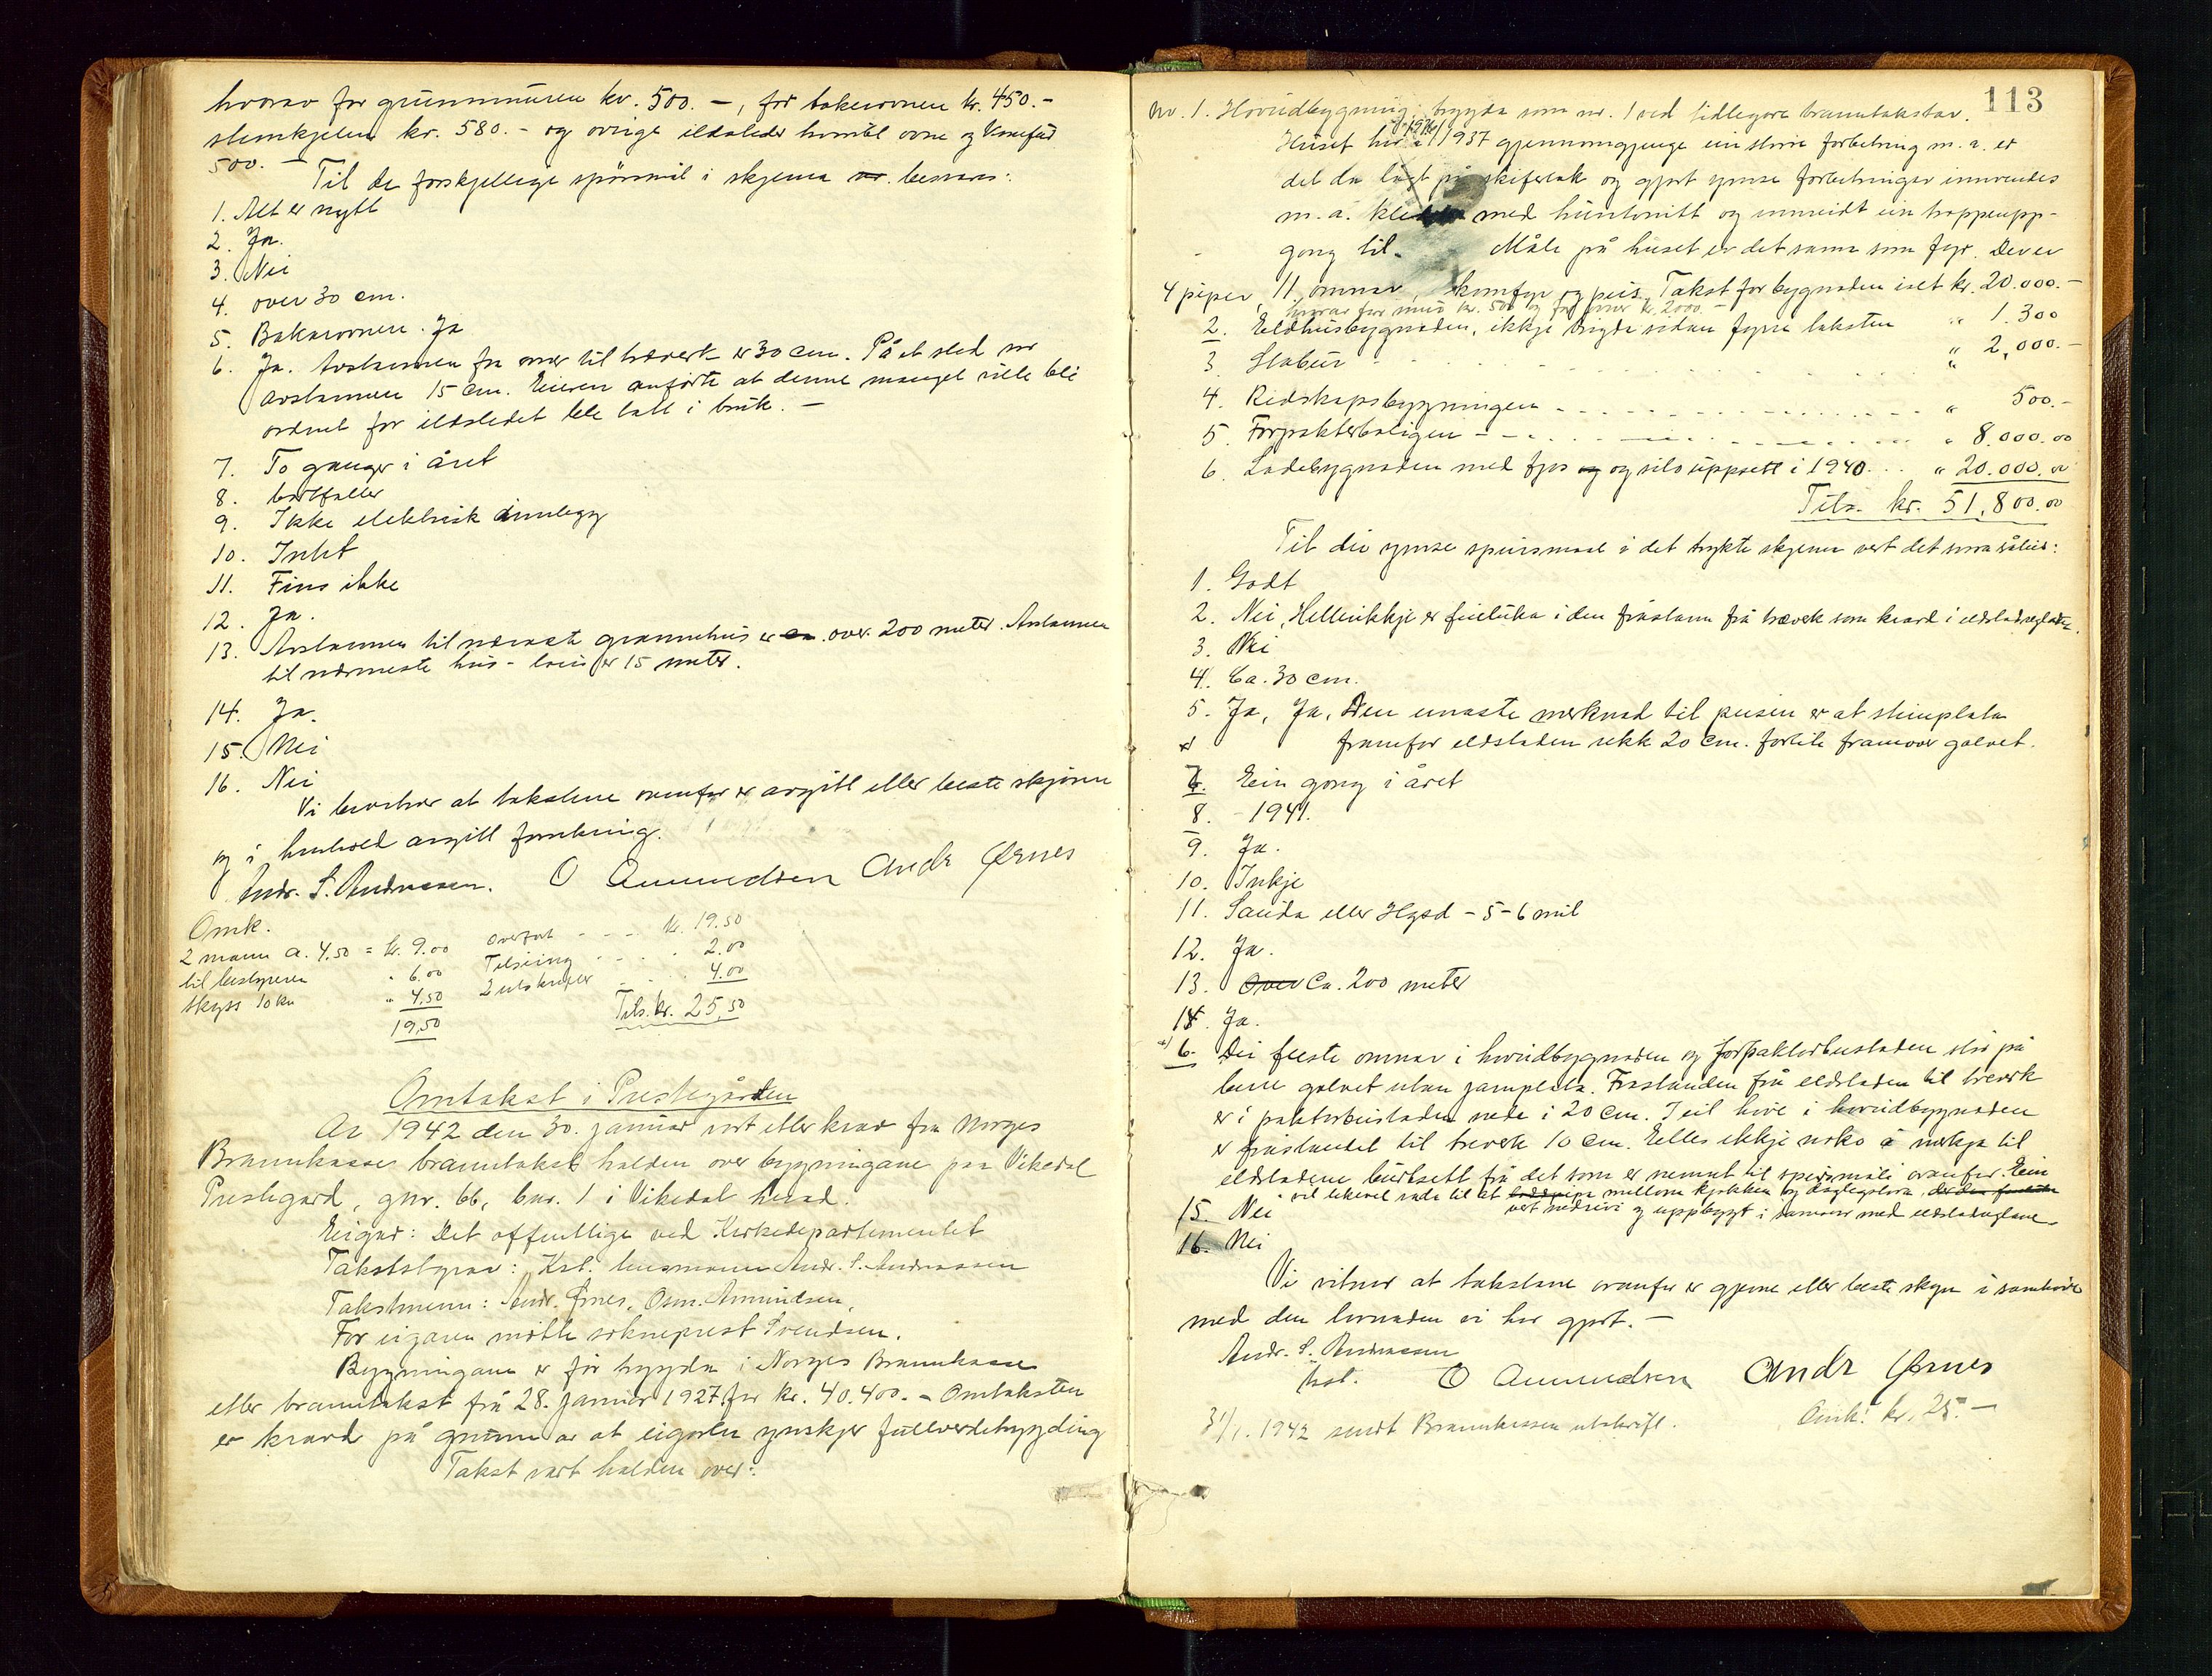 hvorav for grunnmuren kr. 500.-, for bakerovnen kr. 450.-
steinkjelen kr. 580.- og øvrige ildsteder
500.-
Til de forskjellige spørsmål i skjema nr. besvares:
1. Alt er nytt
2. Ja.
3. Nei
4. over 30 cm.
5. Bakerovnen. Ja
6. Ja. Avstannen fra ovner til treverk er 30 cm. På et sted var
avstannen 15 cm. Eieren anførte at denne mangel ville bli
ordnet før ildstedet ble tatt i bruk. -
7. To ganger i året
8. bortfaller
9. Ikke elektrisk innlegg
10. Intet
11. Fins ikke
12. Ja.
13. Avstannen til næraste grannehus er over 200 meter. Avstannen
til nærmeste hus - er 15 meter.
14. Ja.
15. Nei
16. Nei
Vi bevitner at takstene ovenfor er avgitt etter beste skjønn
og i henhold avgitt forsikring.
Andr. S. Andreassen. O Amundsen Andr Ørnes
Omk.
2 mann a. 4,50 = kr. 9.00
til bestyreren " 6.00
skyss 10 km " 4,50
19,50
Overført - - - kr. 19.50
Tilsiing - - - 2.00
2 utskrifter - - - 4.00
Tils. kr. 25,50
Omtakst i Prestegården
År 1942 den 30. januar vart etter krav fra Norges
Brannkasse branntakst halden over bygningane paa Vikedal
Prestegard, gnr. 66, bnr. 1 i Vikedal herad.
Eigar: Det offentlige ved Kirkedepartementet
Takststyrar: Kst. lensmann Andr. S. Andreassen
Takstmenn: Andr. Ørnes, Osm. Amundsen,
For eigaren møtte sokneprest Svendsen.
Bygningane er før trygda i Norges Brannkasse
etter branntakst frå 28. januar 1927 for kr. 40.400.- Omtaksten
er kravd på grunn av at eigaren ynskjer fullverdetrygding
Takst vart halden over:
113
Nr. 1. Hovudbygning, trygda som nr. 1 ved tidlegare branntakstar.
Huset har i 1936/1937 gjennomgjenge ein større forbetring m. a. er
det da lagt på skifertak og gjort ymse forbetringar innvendes
m. a. kledd med huntonitt og innreidt ein trappeupp-
gong til. Måle på huset er det same som fyr. Der er
4 piper, 11 omnar, komfyr og peis. Takst for bygnaden iset kr. 20.000.-
hvorav for mur kr. 500 og for piper kr. 2000.-
2. Eldhusbygnaden, ikkje trygda sidan fyrre taksten " 1.300
3. Stabur " 2,000.-
4. Reidskapsbygningen " 500.-
5. Forpakterboligen " 8.000.00
6. Ladebygnaden med fjøs og og silo uppsett i 1940 " 20.000.00
Tils. kr. 51,800.00
Til dei ymse spursmaal i det trykte skjema vert det svara såleis:
1. Godt
2. Nei, Hellerikkje er feieluka i den fråstann frå træverk som kravd i eldstadreglane.
3. Nei
4. Ca. 30 cm.
5. Ja, Ja, Den einaste merknad til peisen er at steinplata
x) framfor eldstaden rekk 20 cm. forlite framover golvet.
7. Ein gong i året
8. - 1941.
9. Ja.
10. Inkje
11. Sauda eller Hgsd - 5-6 mil
12. Ja.
13. Over Ca. 200 meter
14. Ja.
x) 6. Dei fleste omnar i hovudbygnaden og forpaktarbustaden står på
berre golvet utan jarnplata. Fråstanden frå eldstaden til treverk
er i paktarbustaden nede i 20 cm. I eit høve i hovudbygnaden
er fråstandet til treverk 10 cm. Elles ikkje noko å merkja til
eldstadene burtsett frå det som er nemnt til spursmåli ovanfor. Ein
vil likevel råda til at mellom kjøkken og daglegstova
vert nedrivi og uppbygt i samsvar med eldstadreglane.
15. Nei
16. Nei
Vi vitnar at takstane ovanfor er gjevne etter beste skyn i samhøve
med den lovnaden vi har gjort. -
Andr. S. Andreassen
kst. O Amundsen Andr Ørnes
31/1. 1942 sendt Brannkassen utskrift. Omk. kr. 25.-